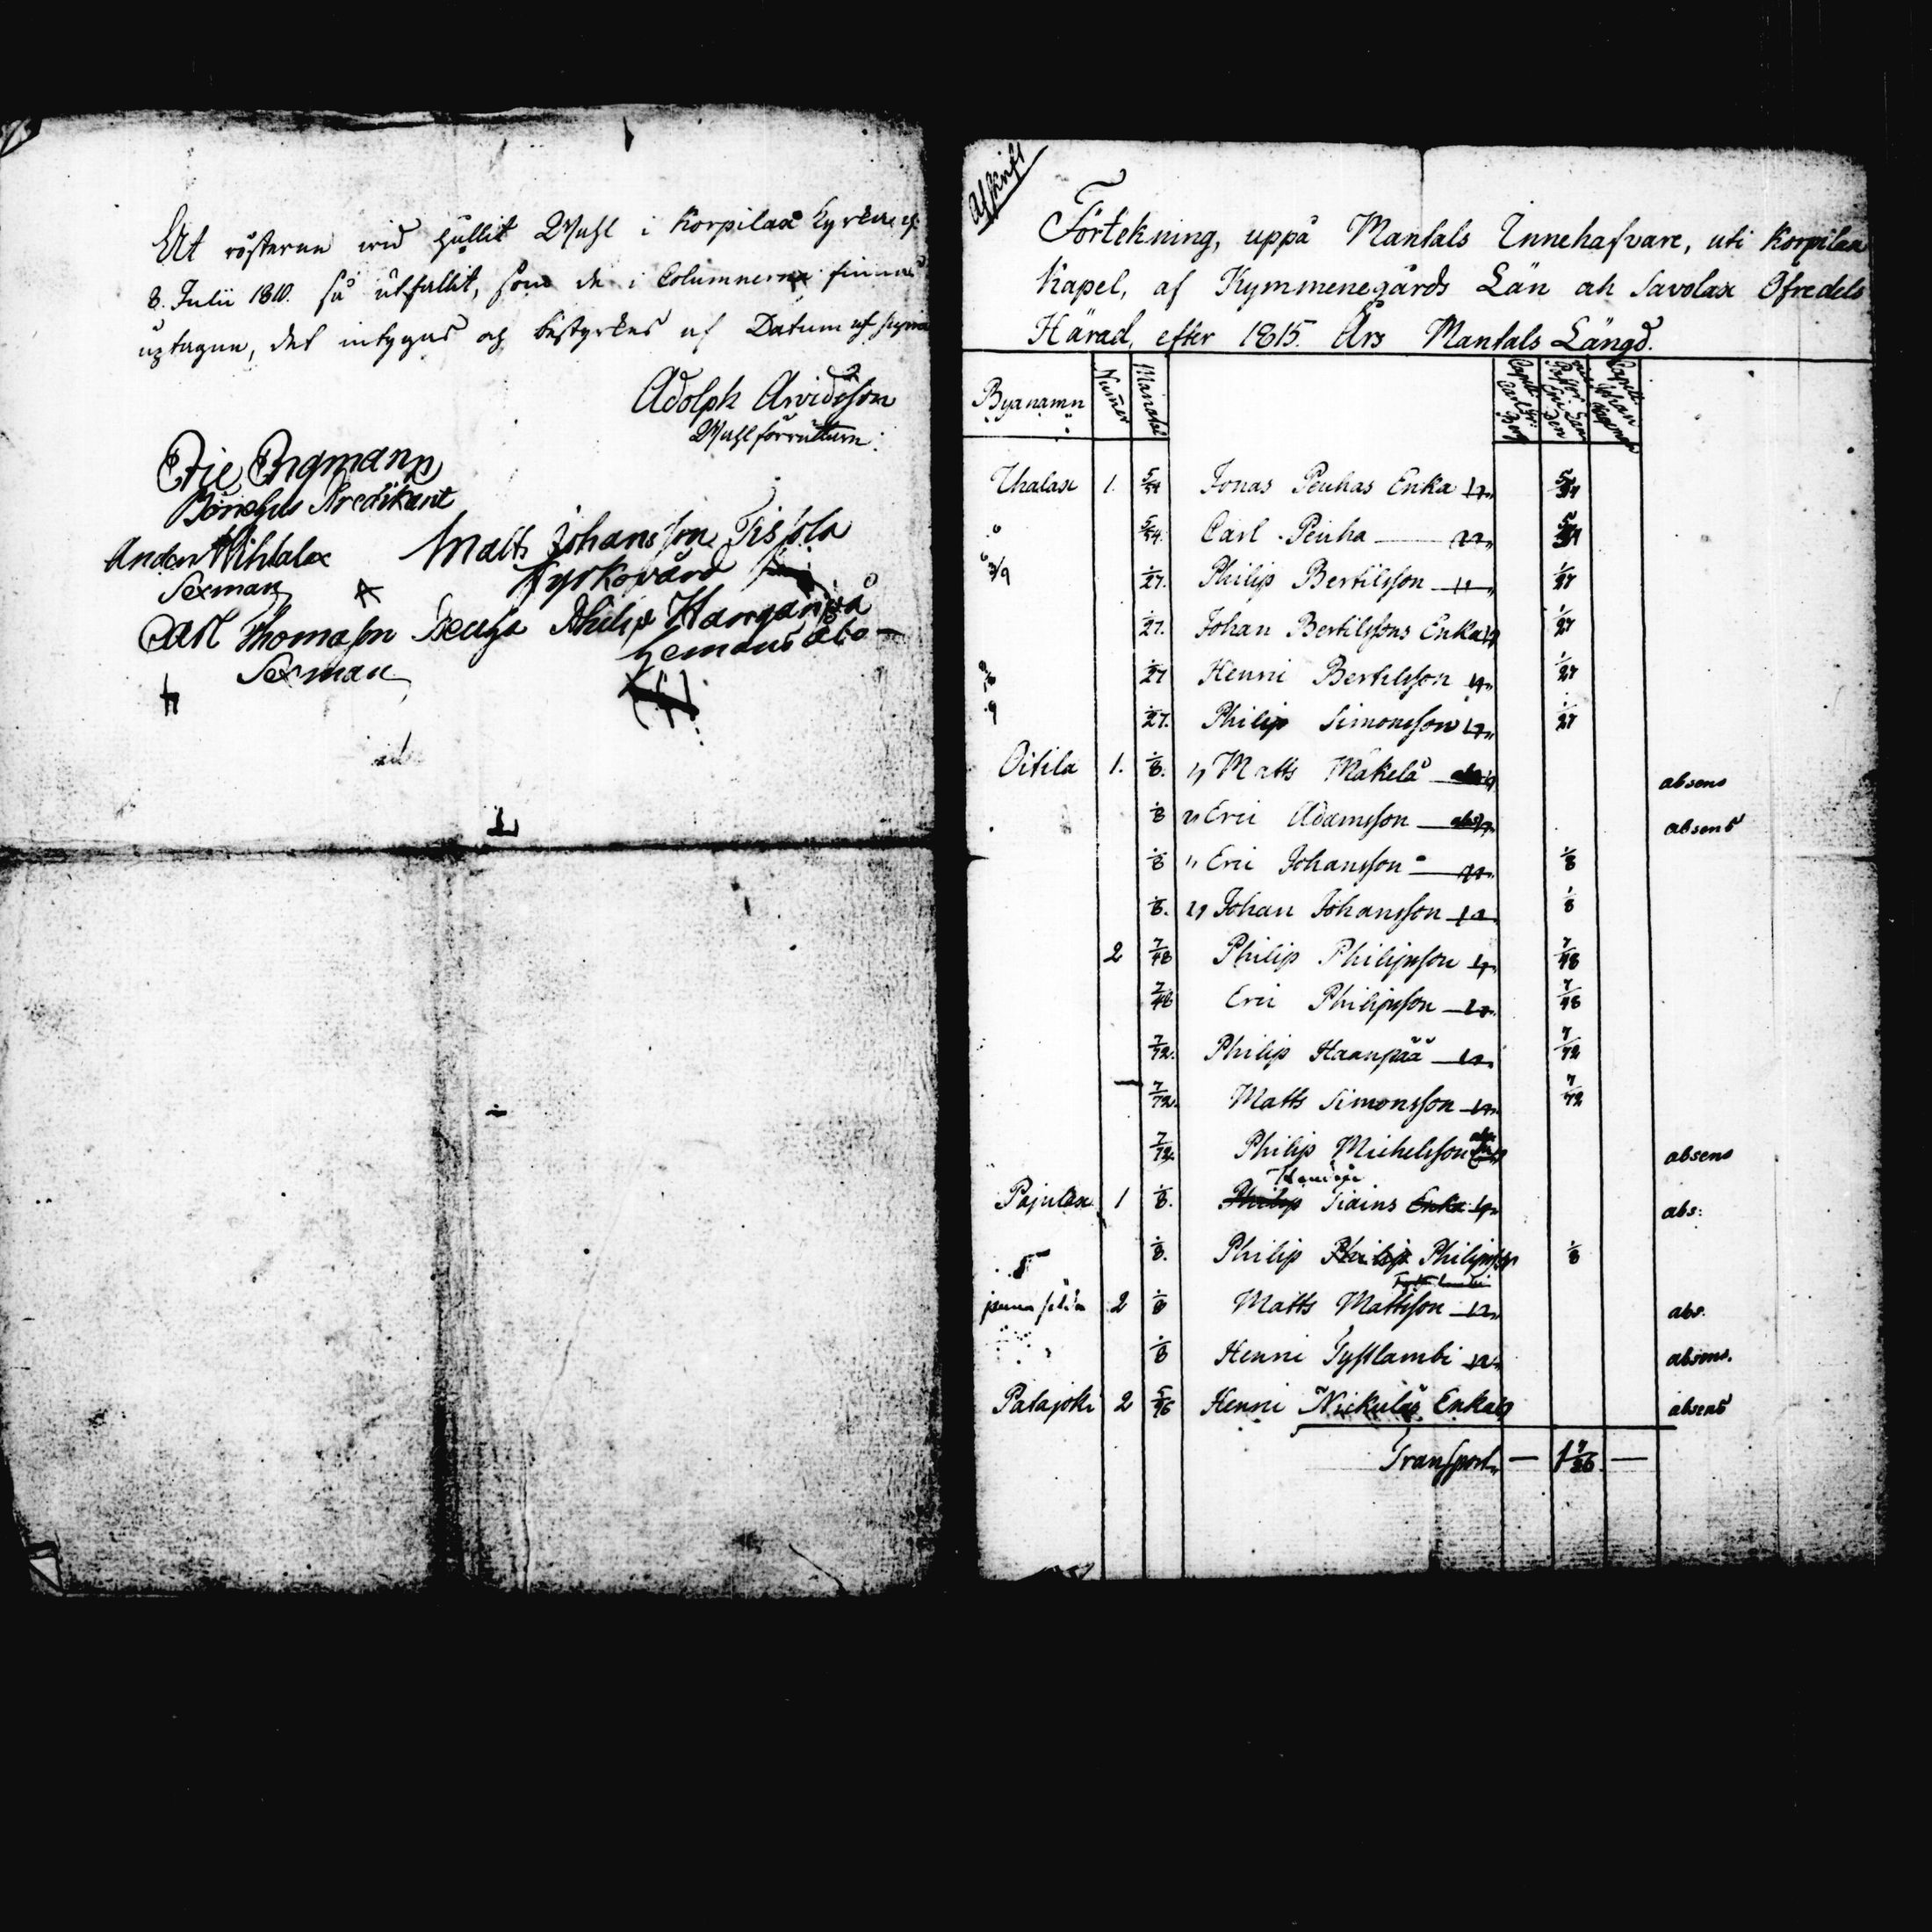 At rösterne wid hållit Wahl i Korpilax Kyrka d.
8. Julii 1810. så utfallit, som de i Columnerna finnas
uptagne, det intygas och bestyrkes af Datum ut supra
Adolph Arvidsson
Wahlförrättare.
Eric Ergmann
Bönehus Predikant
Anders Wihtalax
Sexman
Matts Johansson Tissola
Kyrkovärd
Carl Thomasson Peuha
Sexman
Philip Haanpää
Afskrift
Förtekning, uppå Mantals Innehafvare, uti Korpilax
Kapel, af Kymmenegårds Län och Savolax Öfredels
Härad, efter 1815 Års Mantals Längd.
Byanamn Numer Mantal
Uhalax 1. 5/54 Jonas Peuhas Enka 5/54
5/54. Carl Peuha 5/54
1/27. Philip Bertilsson 1/27
1/27. Johan Bertilssons Enka 1/27
1/27 Henric Bertilsson 1/27
1/27. Philip Simonsson 1/27
Oitila 1. 1/8. Matts Mäkelä absens
1/8 Eric Adamsson absens
1/8 Eric Johansson 1/8
1/8. Johan Johansson 1/8
2 7/48 Philip Philipsson 7/48
7/48 Eric Philipsson 7/48
7/72. Philip Haanpää 7/72
7/72. Matts Simonsson 7/72
7/72. Philip Michelsson absens
Pajulax 1 1/8. Philip Tiains Enka abs:
1/8. Philip Philip Philipsson 1/8
2 1/8 Matts Mattsson abs.
1/8 Henric Tyttlambi absens.
Patajoki 2 5/96 Henric Nickulas Enka absens
Transport